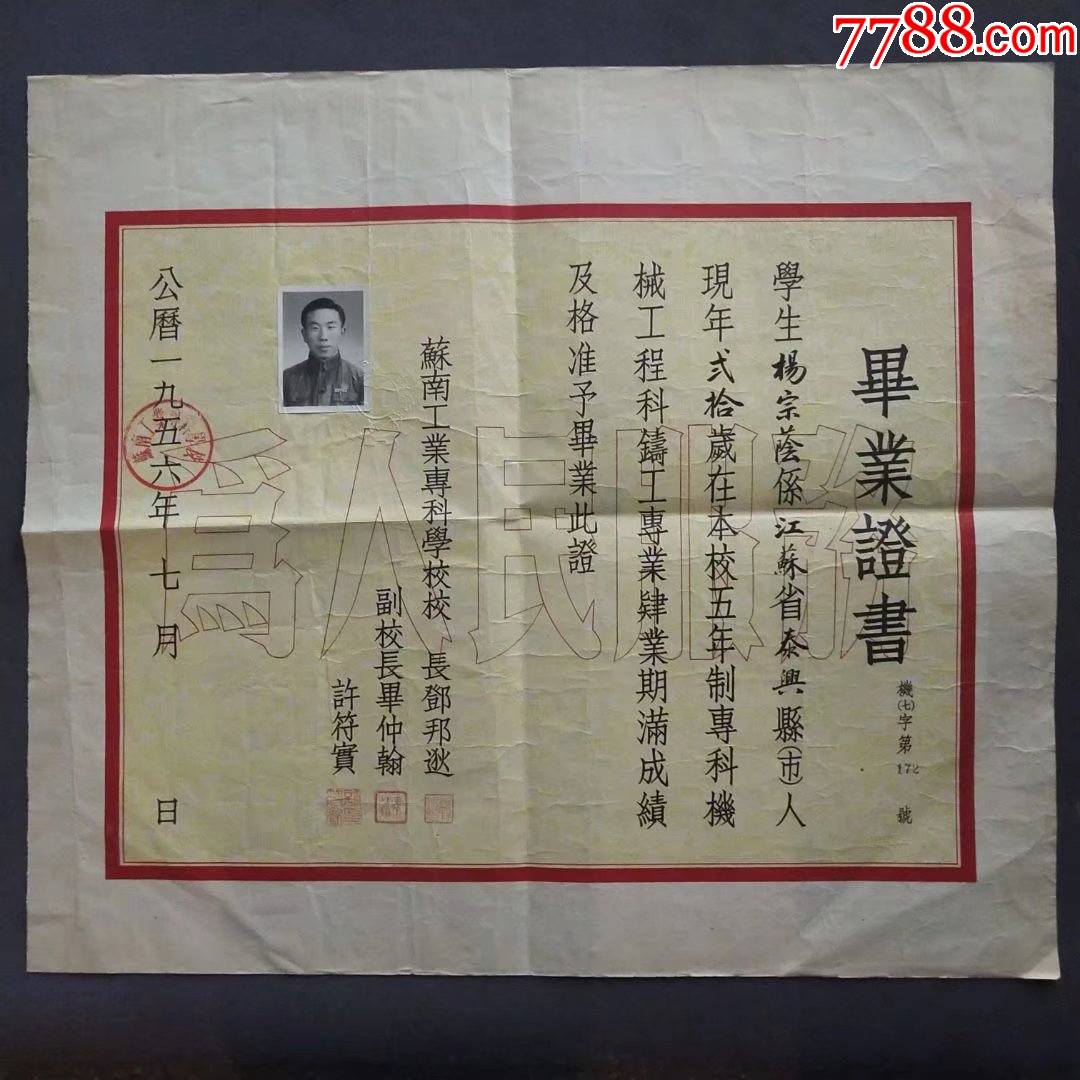 7788.com
畢業證書
機(七)字第172號
學生楊宗蔭係江蘇省泰興縣(市)人
現年弍拾歲在本校五年制專科機
械工程科鑄工專業肄業期滿成績
及格准予畢業此證
蘇南工業專科學校校長鄧邦逖
副校長畢仲翰
許符實
公曆一九五六年七月 日
為人民服務